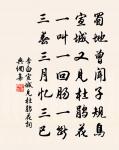 蜀地曾聞子規鳥
宣城又見杜鵑花
一叫一回腸一斷
三春三月忆三巴
李白宣城見杜鵑花詞